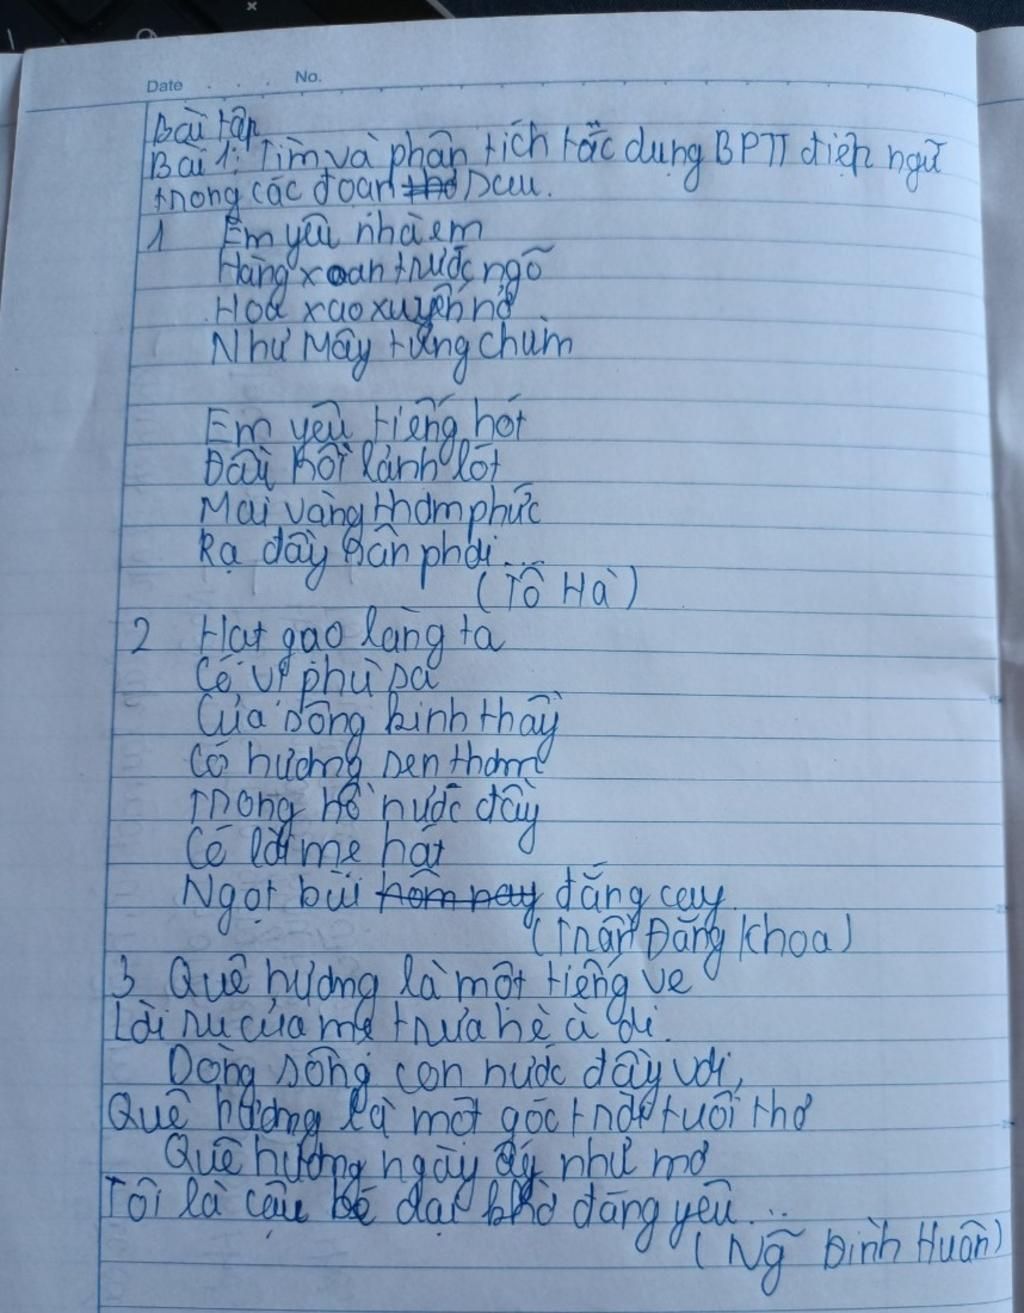 Date No.
Bài tập
Bài 1: Tìm và phân tích tác dụng BPTT điệp ngữ
trong các đoạn thơ sau.
1 Em yêu nhà em
Hàng xoan trước ngõ
Hoa xao xuyến nở
Như Mây từng chùm
Em yêu tiếng hót
Đầu hồi lảnh lót
Mái vàng thơm phức
Rạ đầy sân phơi...
(Tô Hà)
2 Hạt gạo làng ta
Có vị phù sa
Của sông kinh thầy
Có hương sen thơm
Trong hồ nước đầy
Có lời mẹ hát
Ngọt bùi hôm nay đắng cay.
(Trần Đăng Khoa)
3 Quê hương là một tiếng ve
Lời ru của mẹ trưa hè à ơi.
Dòng sông con nước đầy vơi,
Quê hương là một góc trời tuổi thơ
Quê hương ngày ấy như mơ
Tôi là cậu bé dại khờ đáng yêu...
(Ng Đình Huân)